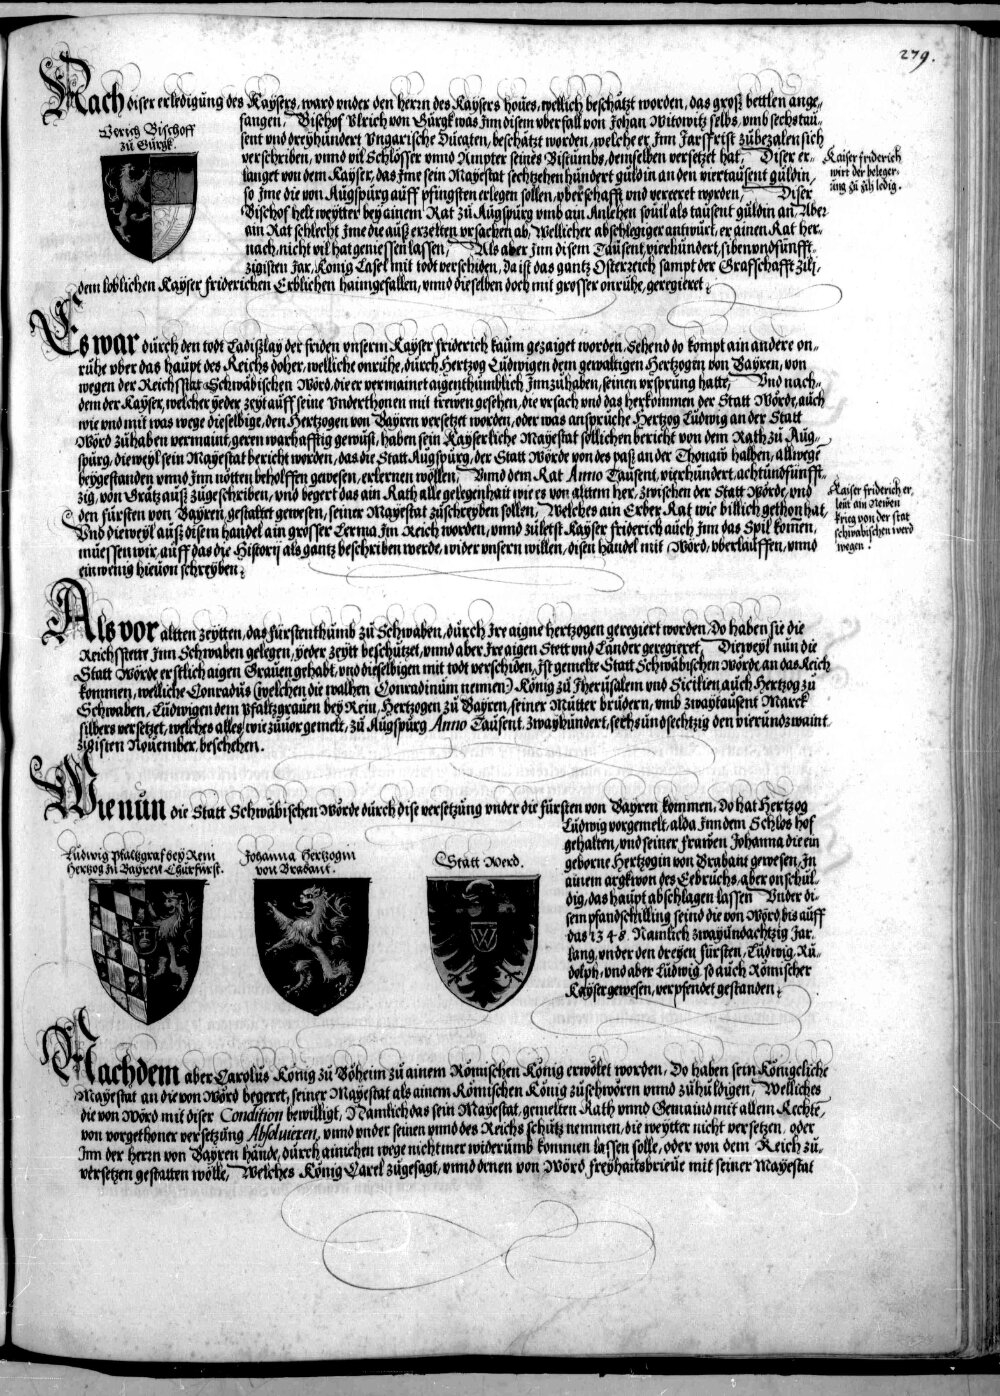 279.
Nach diser erledigung des Kaÿsers, ward vnder den herrn des Kaÿsers houes, wellich beschätzt worden, das groß bettlen ange-
Vlrich Bischoff
zu Gürgk.
fangen, Bischof Vlrich von Gürgk was Jnn disem vberfall von Johan Witowitz selbs, vmb sechstau-
sent vnd dreÿhundert Vngarische Ducaten, beschätzt worden, welche er Jnn Jarsfrist zübezalen sich
verschriben, vnnd vil Schlösser vnnd Ampter seines Bistumbs, demselben versetzet hat, Diser er-
langet von dem Kayser, das Jme sein Maÿestat sechtzehenhundert guldin an den viertausent guldin,
so Jme die von Augspürg auff pfingsten erlegen sollen, vberschafft vnd vereeret worden, Diser
Bischof helt weÿtter beÿ ainem Rat zü Augspürg vmb ain Anlehen souil als tausent guldin an, Aber
ain Rat schlecht Jme die auß erzelten vrsachen ab, Wellicher abschlegiger antwurt, er ainen Rat her-
nach, nicht vil hat geniessen lassen, Als aber Jnn disem Tausent, vierhundert, sibenvndfünfft-
zigisten Jar, König Lasel mit todt verschiden, Da ist das gantz Osterreich sampt der Grafschafft Zili,
dem loblichen Kaÿser friderichen Erblichen haimgefallen, vnnd dieselben doch mit grosser onrühe, geregieret.
Kaiser friderich
wirt der beleger-
ung zu Zili ledig.
Es war durch den todt Ladißlaÿ der friden vnserm Kaÿser friderich kaum gezaiget worden, Sehend do kompt ain andere on-
rühe vber das haupt des Reichs doher, welliche onrühe, durch Hertzog Lüdwigen dem gewaltigen Hertzogen von Baÿren, von
wegen der Reichsstat Schwäbischen Wörd, die er vermainet aigenthümblich Jnnzühaben, seinen vrsprung hatte, Vnd nach-
dem der Kaÿser, welcher ÿeder zeÿt auff seine Vnderthonen mit trewen gesehen, die vrsach vnd das herkommen der Statt Wörde, auch
wie vnd mit was wege dieselbige, den Hertzogen von Baÿren versetzt worden, oder was ansprüche Hertzog Lüdwig an der Statt
Wörd zühaben vermaint, geren warhafftig gewüst, haben sein Kaÿserliche Maÿestat söllichen bericht von dem Rath zü Aug-
spürg, dieweÿl sein Maÿestat bericht worden, das die Statt Augspürg, der Statt Wörde von des paß an der Thonaw halben, allwege
beÿgestanden vnnd Jnn nötten beholffen gewesen, erlernen wöllen, Vnnd dem Rat Anno Tausent, vierhundert, achtundfünfft-
zig, von Grätz auß zügeschriben, vnd begert das ain Rath alle gelegenhait wie es von alttem her, zwischen der Statt Wörde, vnd
den fürsten von Baÿren gestaltet gewesen, seiner Maÿestat züschreÿben sollen, Welches ain Erber Rat wie billich gethon hat,
Vnd dieweÿl auß disem handel ain grosser Lerma Jm Reich worden, vnnd zületst Kaÿser friderich auch Jnn das Spil komen,
müessen wir, auff das die Historÿ als gantz beschriben werde, wider vnsern willen, disen handel mit Wörd, vberlauffen, vnnd
ein wenig hieuon schreÿben.
Kaiser friderich er-
lent ain Newen
krieg von der stat
schwabischen werd
wegen.
Als vor altten zeÿtten, das fürstenthumb zü Schwaben, durch Jre aigne hertzogen geregiert worden, Do haben sie die
Reichsstette Jnn Schwaben gelegen, ÿeder zeÿtt beschützet, vnnd aber Jre aigen Stett vnd Länder geregieret, Dieweÿl nun die
Statt Wörde erstlich aigen Grauen gehabt, vnd dieselbigen mit todt verschiden, Jst gemelte Statt Schwäbischen Wörde an das Reich
kommen, welliche Conradüs (welchen die walhen Conradinüm nennen) König zü Jherüsalem vnd Sicilien, auch Hertzog zü
Schwaben, Lüdwigen dem pfaltzgrauen beÿ Rein, Hertzogen zü Baÿren, seiner Mütter brüdern, vmb zwaÿtausent Marck
silbers versetzet, welches alles wie züuor gemelt, zü Augspürg Anno Tausent, zwaÿhundert, sechsündsechtzig den vierundzwaint
zigisten Nouember, beschehen.
Wie nün die Statt Schwäbischen Wörde dürch dise versetzüng vnder die fürsten von Baÿren kommen, Do hat Hertzog
Ludwig Pfaltzgraf beÿ Rein
Hertzog zu Baÿren Churfürst.
Johanna Hertzogin
von Brabant.
Statt Werd.
Lüdwig vorgemelt, alda Jnn dem Schlos hof
gehalten, vnd seiner frawen Johanna die ein
geborne Hertzogin von Brabant gewesen, Jn
ainem argkwon des Eebrüchs, aber onschül-
dig, das haupt abschlagen lassen, Vnder di-
sem pfandschilling seind die von Wörd bis auff
das 1348. Namlich zwaÿundachtzig Jar,
lang, vnder den dreÿen fürsten, Lüdwig, Rü-
dolph, vnd aber Lüdwig, so auch Römischer
Kaÿser gewesen, verpfendet gestanden.
Nachdem aber Carolüs König zü Böheim zü ainem Römischen König erwölet worden, Do haben sein Königeliche
Maÿestat an die von Wörd begeret, seiner Maÿestat als ainem Römischen König züschwören vnnd zühuldigen, Welliches
die von Wörd mit diser Condition bewilligt, Namlich das sein Maÿestat, gemelten Rath vnnd Gemaind mit allem Rechte,
von vorgethoner versetzüng Absoluieren, vnnd vnder seinen vnnd des Reichs schütz nemmen, die weÿtter nicht versetzen, oder
Jnn der herrn von Baÿren hände, dürch ainichen wege nicht mer widerumb kommen lassen solle, oder von dem Reich zü-
versetzen gestatten wölle, Welches König Carel zügesagt, vnnd denen von Wörd, freÿhaitsbrieue mit seiner Maÿestat